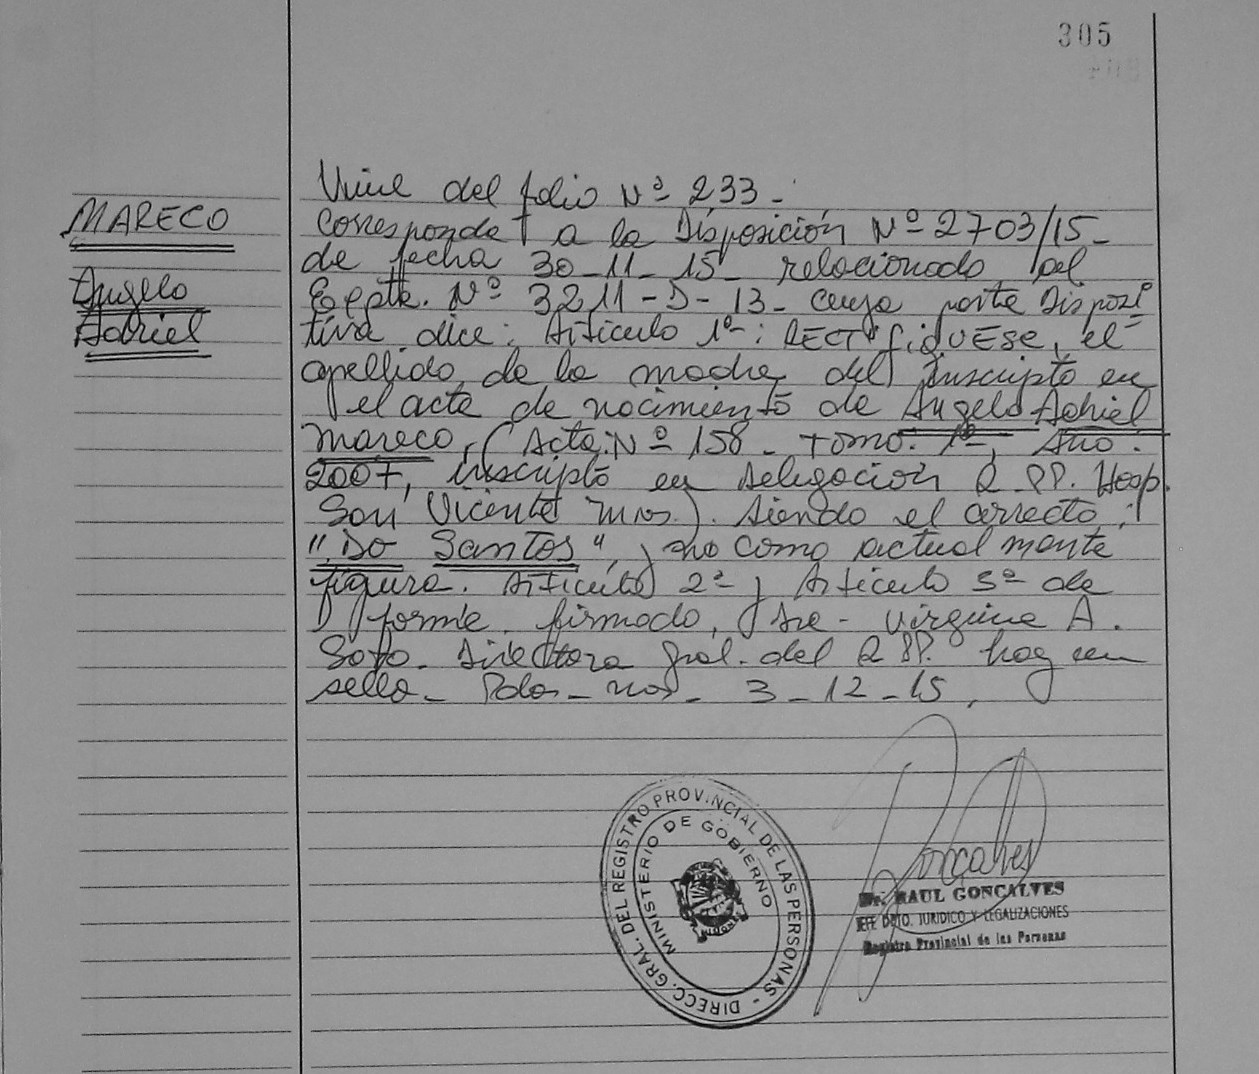 305
Viene del folio Nº 233.-
MARECO
Angelo
Adriel
Corresponde a la Disposición Nº 2703/15-
de fecha 30-11-15- relacionado al
Expte. Nº 3211-D-13- cuya parte Disposi
tiva dice: Artículo 1º: RECTifiQUESE, el
apellido de la madre del inscripto en
el acta de nacimiento de Angelo Adriel
Mareco, (Acta: Nº 158- Tomo: 1º, Año:
2007, inscripto en Delegación R.PP. Hosp.
San Vicente Mns.). Siendo el correcto:
"Do Santos", y no como actualmente
figura. Artículo 2º y Artículo 3º de
forma. firmado, Dra- Virginia A.
Soto- Directora Gral. del R PP. hay un
sello- Pdas- Mns- 3-12-15.
DIRECC. GRAL. DEL REGISTRO PROVINCIAL DE LAS PERSONAS -
MINISTERIO DE GOBIERNO
Goncalves
Dr. RAUL GONCALVES
JEFE DPTO. JURIDICO Y LEGALIZACIONES
Registro Provincial de las Personas